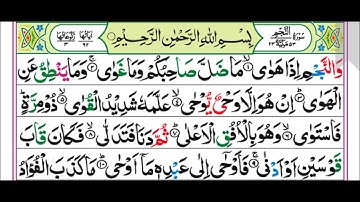 سُوْرَةُ النَّجْمِ بِسْمِ اللهِ الرَّحْمٰنِ الرَّحِيْمِ
وَالنَّجْمِ اِذَا هَوٰى ۙ مَا ضَلَّ صَاحِبُكُمْ وَمَا غَوٰى ۚ وَمَا يَنْطِقُ عَنِ
الْهَوٰى ؕ اِنْ هُوَ اِلَّا وَحْيٌ يُّوْحٰى ۙ عَلَّمَهٗ شَدِيْدُ الْقُوٰى ۙ ذُوْ مِرَّةٍ ؕ
فَاسْتَوٰى ۙ وَهُوَ بِالْاُفُقِ الْاَعْلٰى ؕ ثُمَّ دَنَا فَتَدَلّٰى ۙ فَكَانَ قَابَ
قَوْسَيْنِ اَوْ اَدْنٰى ۚ فَاَوْحٰۤى اِلٰى عَبْدِهٖ مَاۤ اَوْحٰى ؕ مَا كَذَبَ الْفُؤَادُ